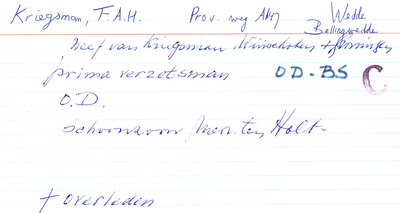 Kriegsman, F.A.H. Prov. weg A47 Wedde
Bellingwedde
Neef van Kriegsman Winschoten + Groningen
prima verzetsman OD-BS C
O.D.
schoonzoon Mevr. ten Holt.
+ overleden